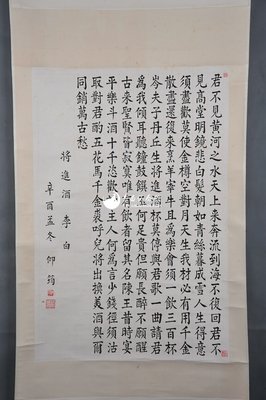 君不見黃河之水天上來奔流到海不復回君不
見高堂明鏡悲白髮朝如青絲暮成雪人生得意
須盡歡莫使金樽空對月天生我材必有用千金
散盡還復來烹羊宰牛且為樂會須一飲三百杯
岑夫子丹丘生將進酒杯莫停與君歌一曲請君
為我傾耳聽鐘鼓饌玉何足貴但願長醉不願醒
古來聖賢皆寂寞唯有飲者留其名陳王昔時宴
平樂斗酒十千恣歡謔主人何為言少錢徑須沽
取對君酌五花馬千金裘呼兒將出換美酒與爾
同銷萬古愁
將進酒 李白
辛酉孟冬 仰筠